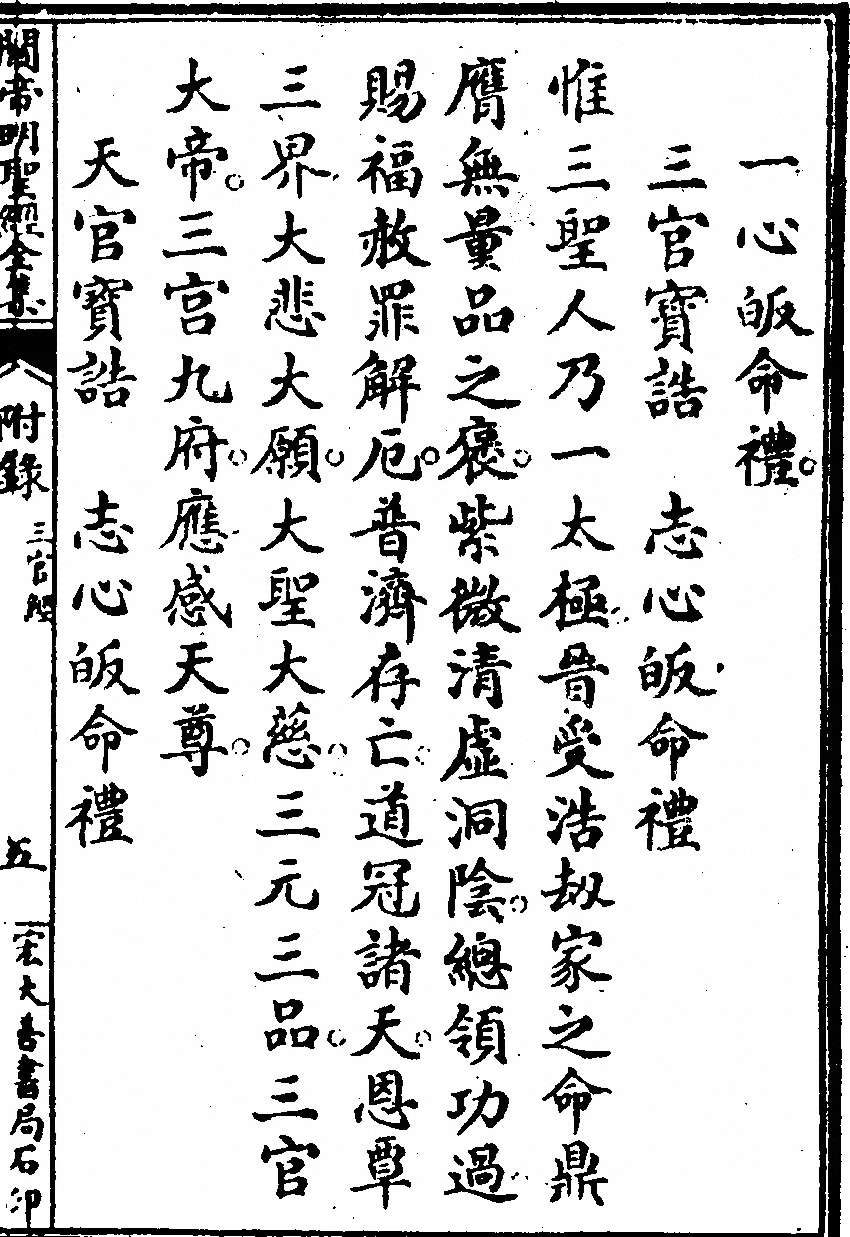 一心皈命禮。
三官寶誥　志心皈命禮
惟三聖人乃一太極普受浩劫家之命鼎
膺無量品之褒。紫微清虛洞陰。總領功過
賜福赦罪解厄。普濟存亡。道冠諸天。恩覃
三界大悲大願。大聖大慈。三元三品。三官
大帝。三宮九府。應感天尊。
天官寶誥　志心皈命禮
關帝明聖經全集
附錄　三官經　五　宏大善書局石印